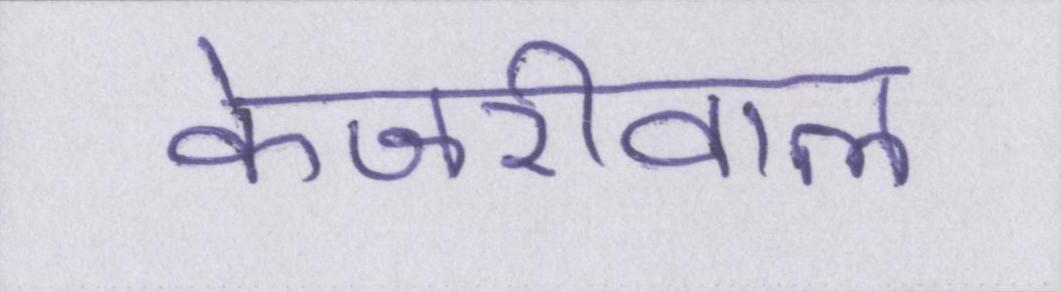 केजरीवाल